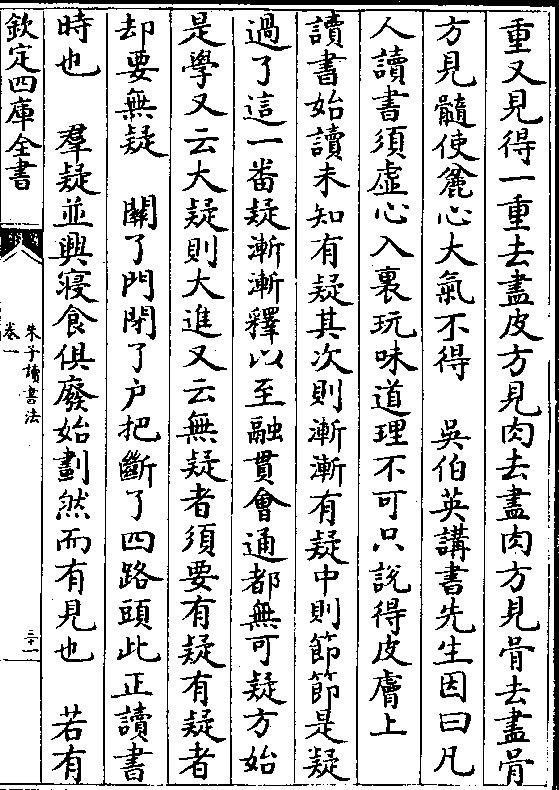 重又見得一重去盡皮方見肉去盡肉方見骨去盡骨
方見髓使麄心大氣不得　吳伯英講書先生因曰凡
人讀書須虛心入裏玩味道理不可只說得皮膚上
讀書始讀未知有疑其次則漸漸有疑中則節節是疑
過了這一番疑漸漸釋以至融貫會通都無可疑方始
是學又云大疑則大進又云無疑者須要有疑有疑者
却要無疑　關了門閉了户把斷了四路頭此正讀書
時也　羣疑並興寢食俱廢始劃然而有見也　若有
欽定四庫全書
朱子讀書法
卷一
二十一